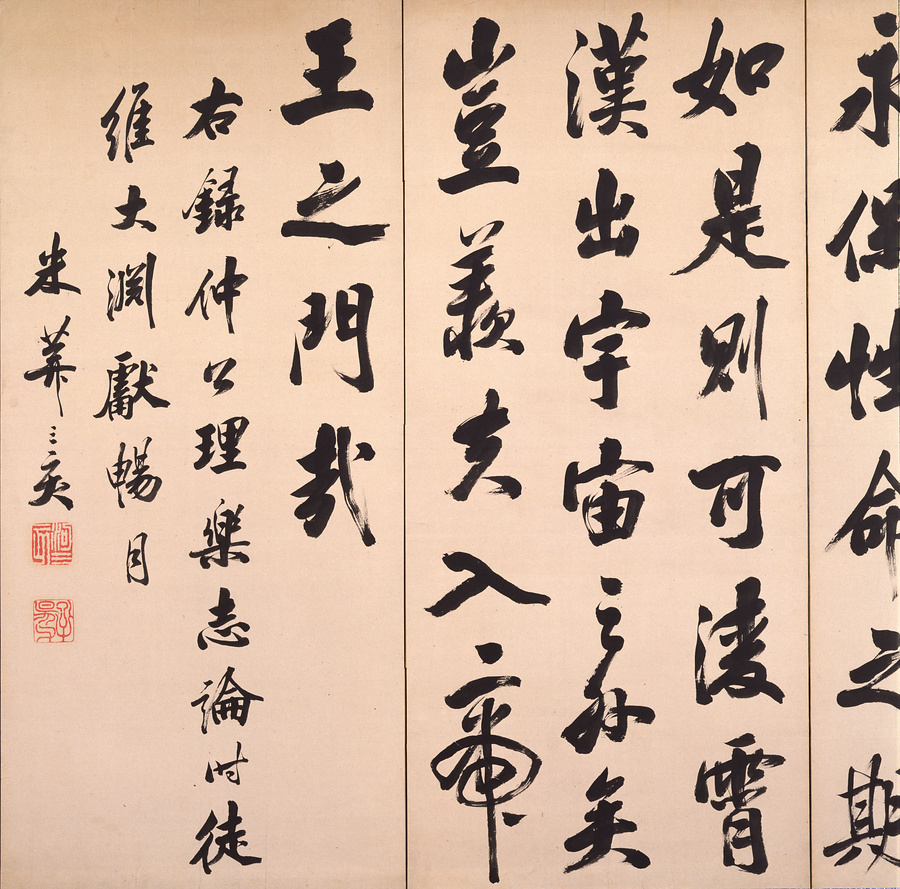 永保性命之期
如是則可淩霄
漢出宇宙之外矣
豈羨夫入帝
王之門哉
右録仲公理樂志論时徒
維大淵獻暢月
米葊三亥